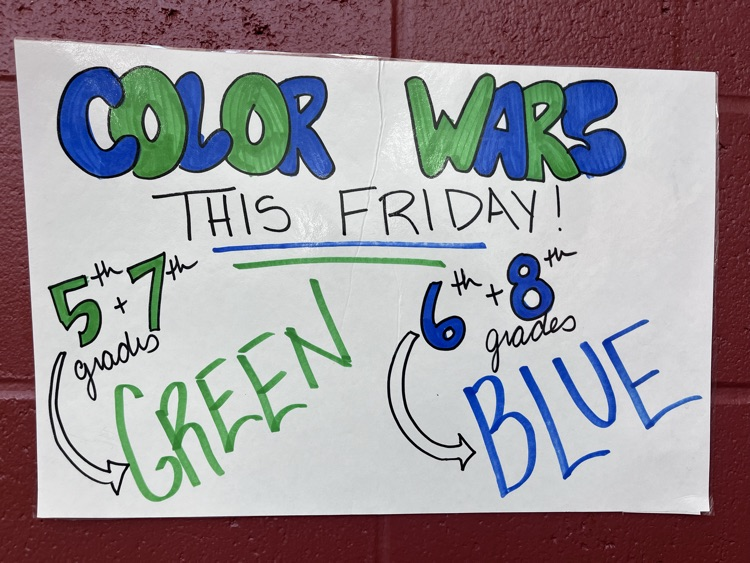 COLOR WARS
THIS FRIDAY!
5th + 7th
grades
GREEN
6th + 8th
grades
BLUE